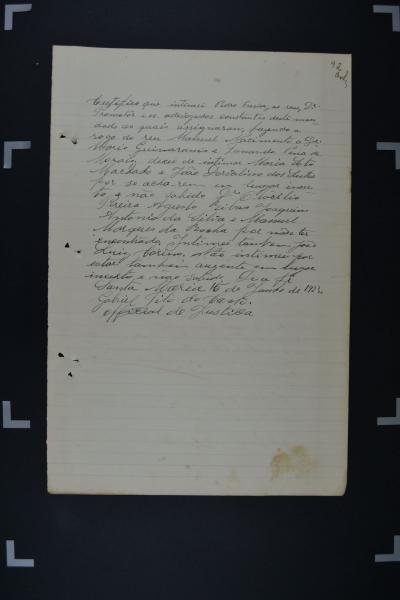 92
Certifico que intimei Pedro, ao reu, Dr.
Promotor e os advogados constantes deste man-
dado os quais assignaram, fazendo a
rogo do reu Manuel Nascimento o Sr.
Mario Guimaraens e Fernando Pena de
Moraes, deixei de intimar Maria
Machado e João dos Santos
por se acharem em lugar incer-
to e não sabido, Dr.
Pereira, Augusto Joaquim
Antonio da Silva e Manuel
Marques da Rocha por não ter
encontrado. Intimei tambem João
Luiz, não intimei por
estar tambem auzente em lugar
incerto e não sabido. Dou fé
Santa Maria 16 de Junho de
Gabriel
official de Justiça